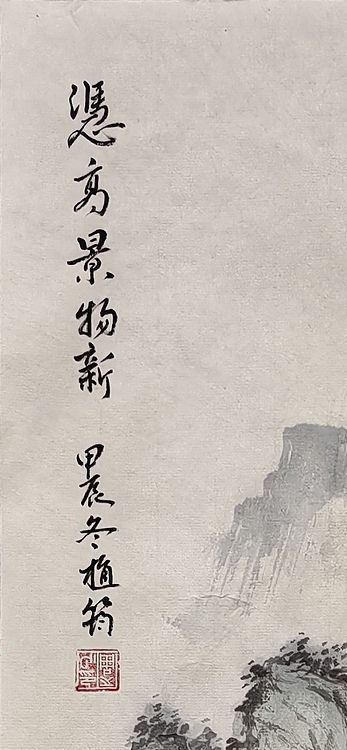 憑高景物新 甲辰冬植筠